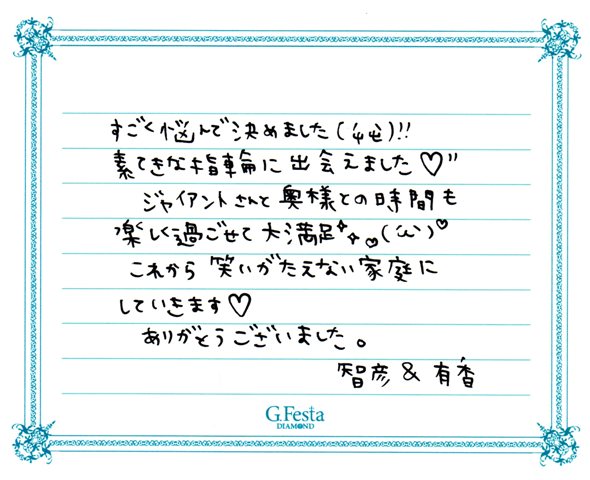 すごく悩んで決めました(件也)!!
素てきな指輪に出会えました♡"
ジャイアントさんと奥様との時間も
楽しく過ごせて大満足✧✧♡(´ω`)♡
これから笑いがたえない家庭に
していきます♡
ありがとうございました。
智彦&有香
G.Festa
DIAMOND